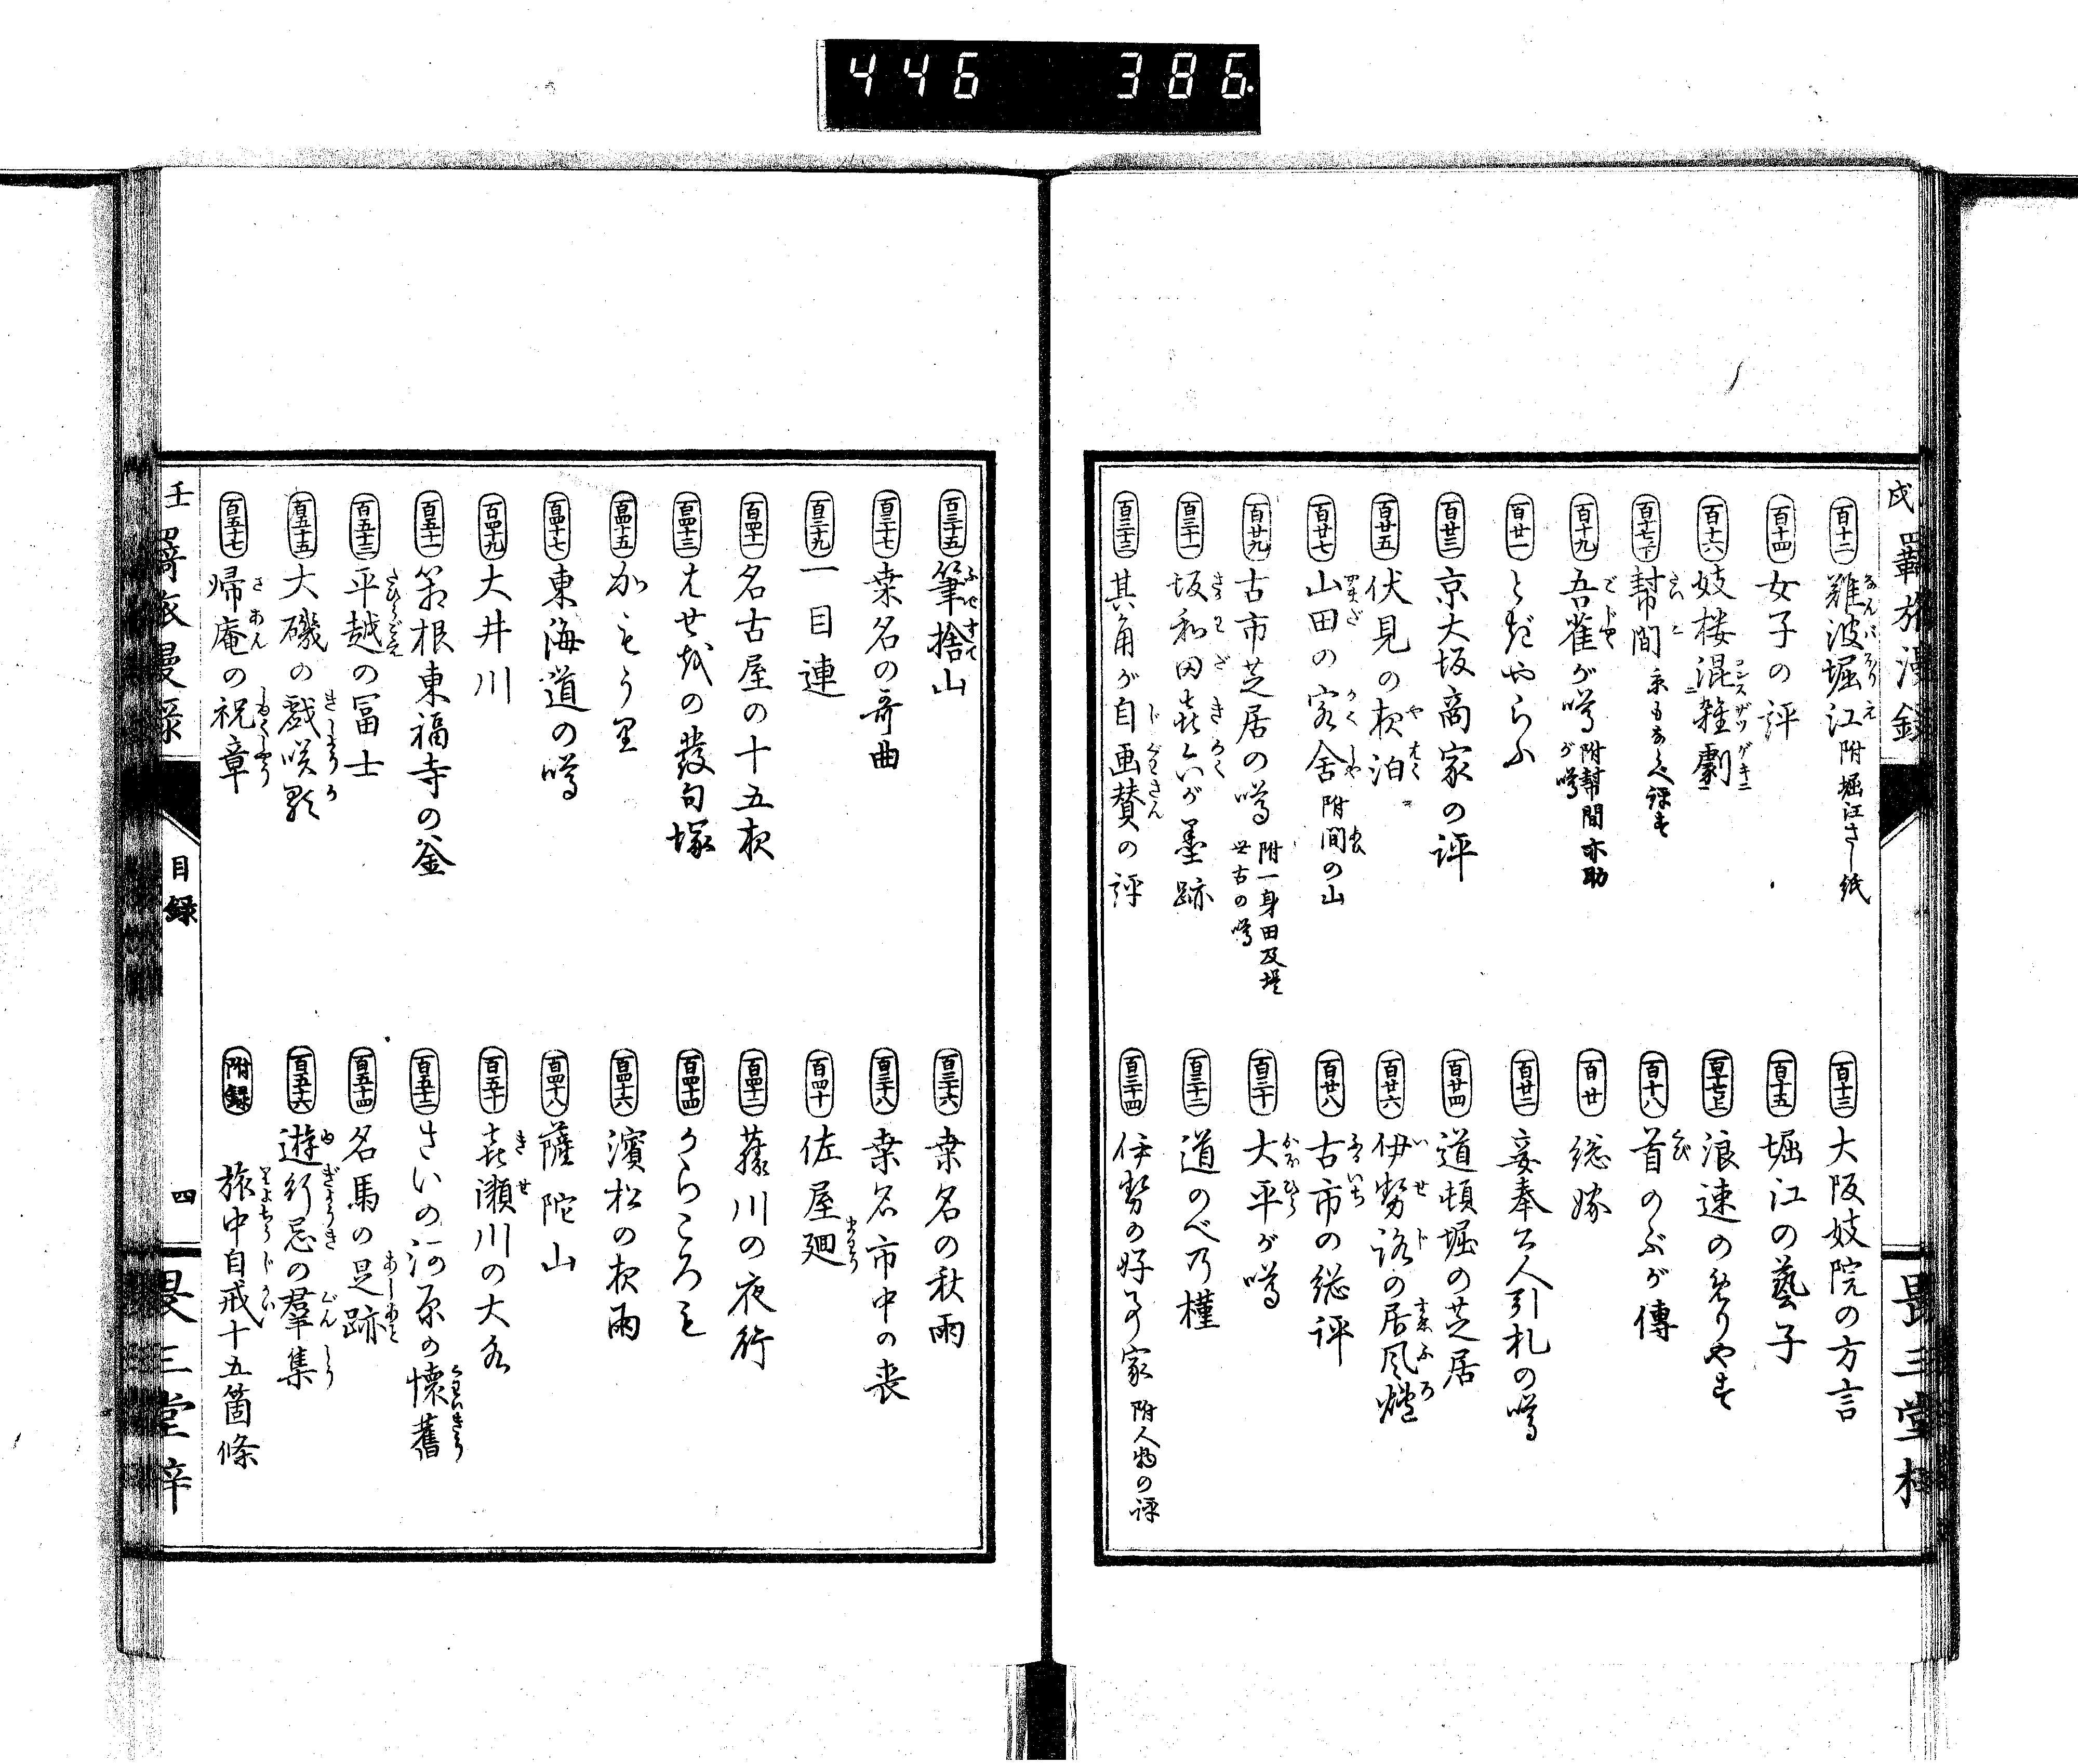 446 386
戌 羈旅漫録
百十二 難波堀江 附堀江さし紙
百十三 大阪妓院の方言
百十四 女子の評
百十五 堀江の藝子
百十六 妓楼混雑劇
百十七上 浪速の
百十七下 幇間
百十八 首のぶが傳
百十九 吾雀が噂 附幇間亦助が噂
百廿 総嫁
百廿一 とぎやらふ
百廿二 妾奉公人引札の噂
百廿三 京大坂商家の評
百廿四 道頓堀の芝居
百廿五 伏見の夜泊
百廿六 伊勢路の居風爐
百廿七 山田の客舎 附間の山
百廿八 古市の総評
百廿九 古市芝居の噂 附一身田及堤世古の噂
百三十 大平が噂
百三十一 坂和田喜六が墨跡
百三十二 道のべ乃槿
百三十三 其角が自画賛の評
百三十四 伊勢の好事家 附人物の評
百三十五 筆捨山
百三十六 桒名の秋雨
百三十七 桒名の哥曲
百三十八 桒名市中の喪
百三十九 一目連
百四十 佐屋廻
百四十一 名古屋の十五夜
百四十二 藤川の夜行
百四十三 はせ越の發句塚
百四十四 うらころも
百四十五 かもうり
百四十六 濱松の夜雨
百四十七 東海道の噂
百四十八 薩陀山
百四十九 大井川
百五十 喜瀬川の大水
百五十一 箱根東福寺の釜
百五十二 さいの河原の懷舊
百五十三 平越の冨士
百五十四 名馬の足跡
百五十五 大磯の戯咲歌
百五十六 遊行忌の羣集
百五十七 帰庵の祝章
附録 旅中自戒十五箇條
壬 羈旅漫録
目録
四
畏三堂梓